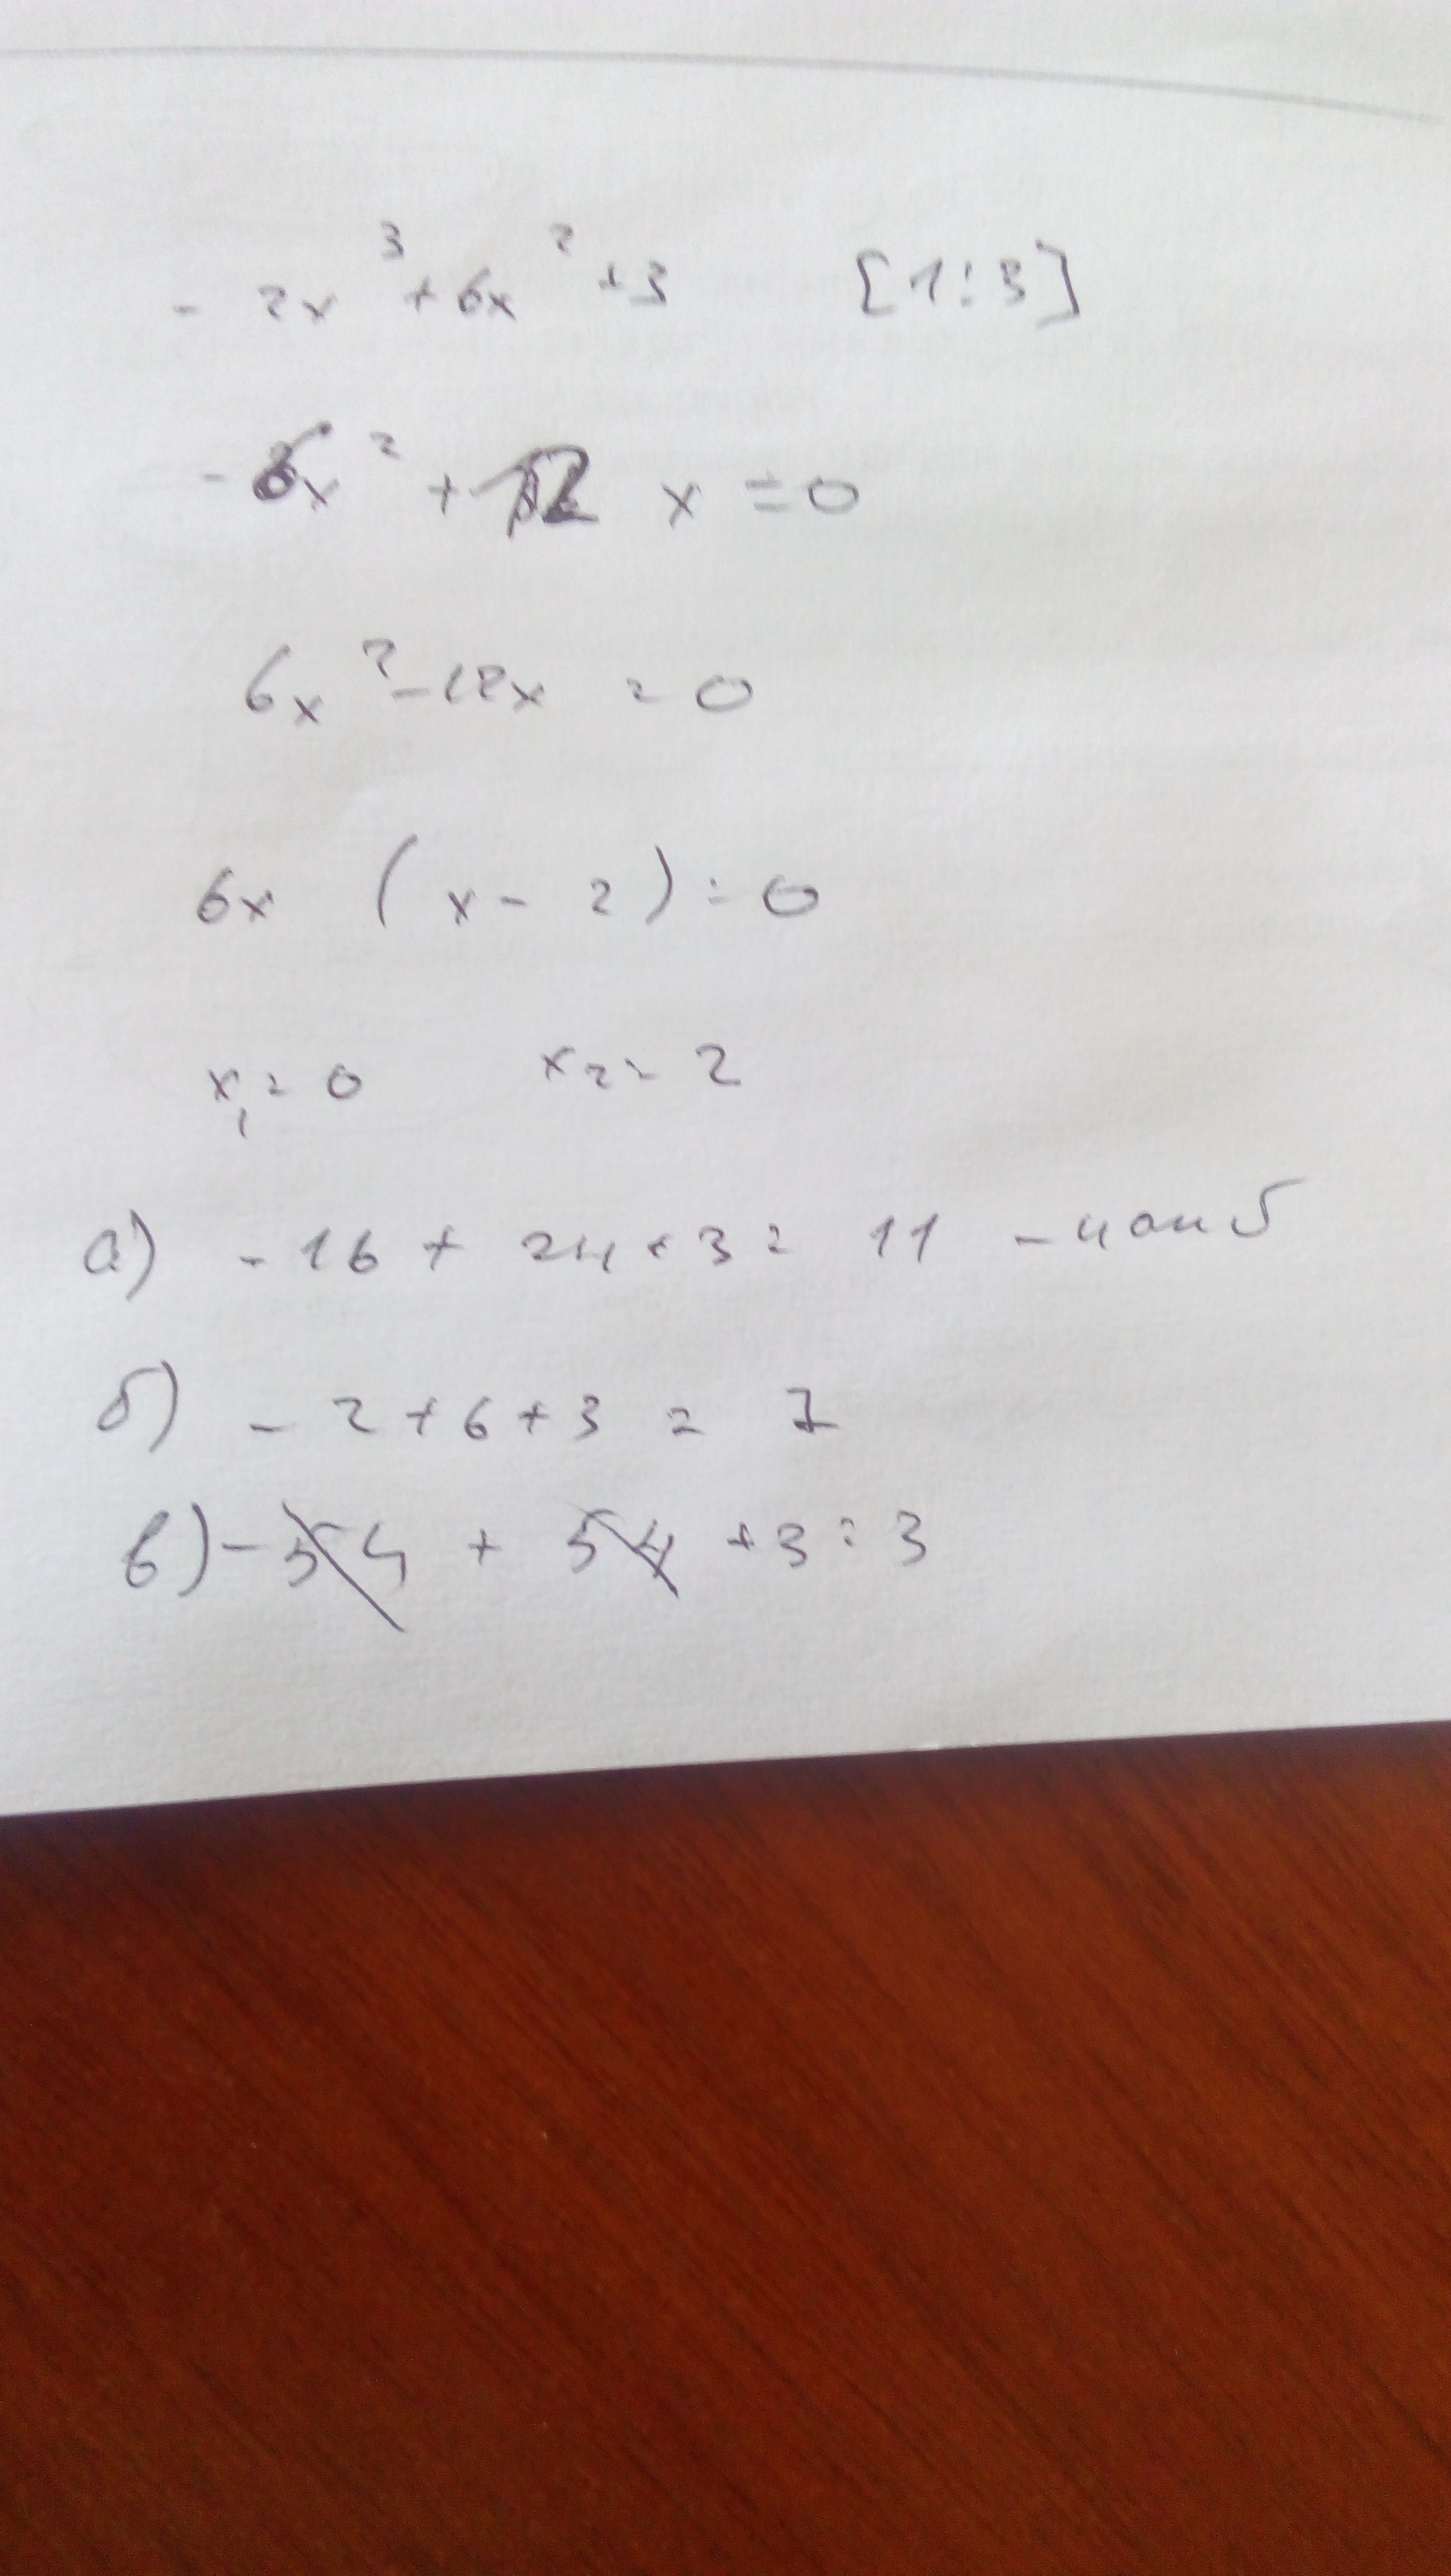 - 2x³ + 6x² + 3 [1;3]
- 6x² + 12x = 0
6x² - 12x = 0
6x (x - 2) = 0
x₁ = 0 x₂ = 2
а) - 16 + 24 + 3 = 11 - наиб
б) - 2 + 6 + 3 = 7
в) - 54 + 54 + 3 = 3